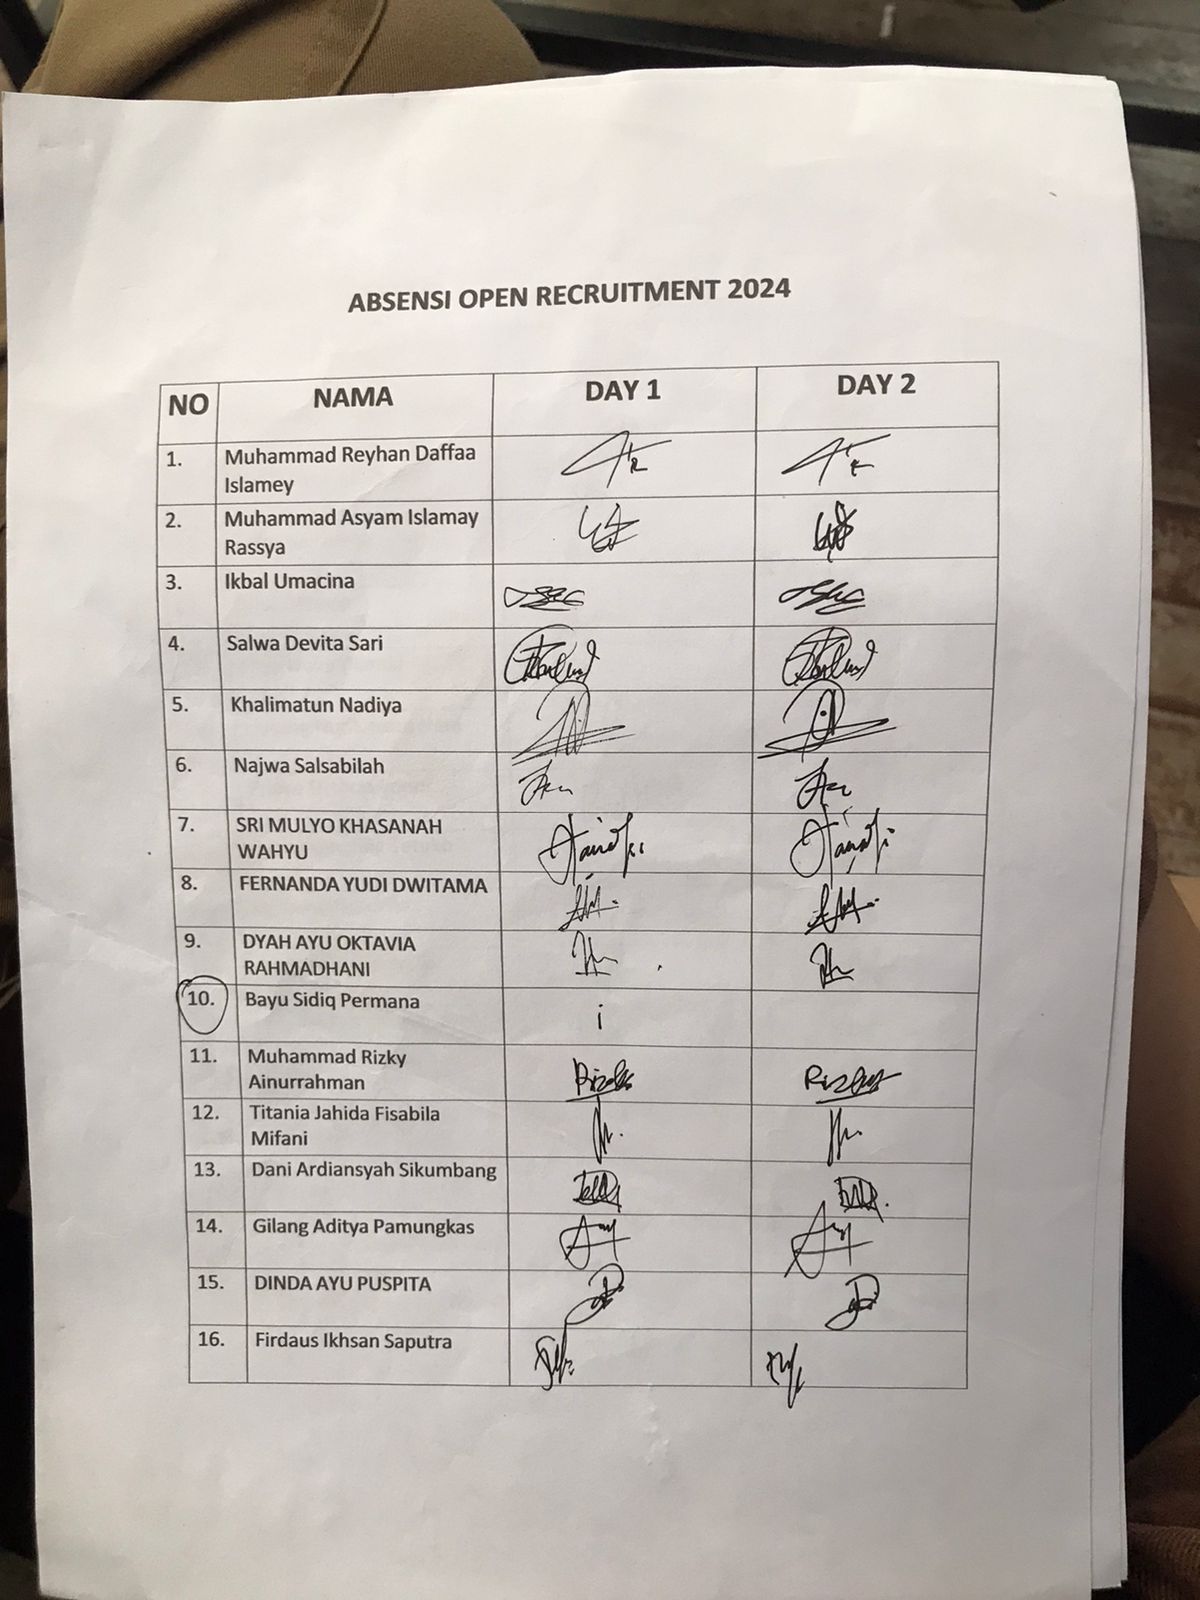 ABSENSI OPEN RECRUITMENT 2024
NO NAMA DAY 1 DAY 2
1. Muhammad Reyhan Daffaa
Islamey
2. Muhammad Asyam Islamay
Rassya
3. Ikbal Umacina
4. Salwa Devita Sari
5. Khalimatun Nadiya
6. Najwa Salsabilah
7. SRI MULYO KHASANAH
WAHYU
8. FERNANDA YUDI DWITAMA
9. DYAH AYU OKTAVIA
RAHMADHANI
10. Bayu Sidiq Permana i
11. Muhammad Rizky
Ainurrahman
12. Titania Jahida Fisabila
Mifani
13. Dani Ardiansyah Sikumbang
14. Gilang Aditya Pamungkas
15. DINDA AYU PUSPITA
16. Firdaus Ikhsan Saputra